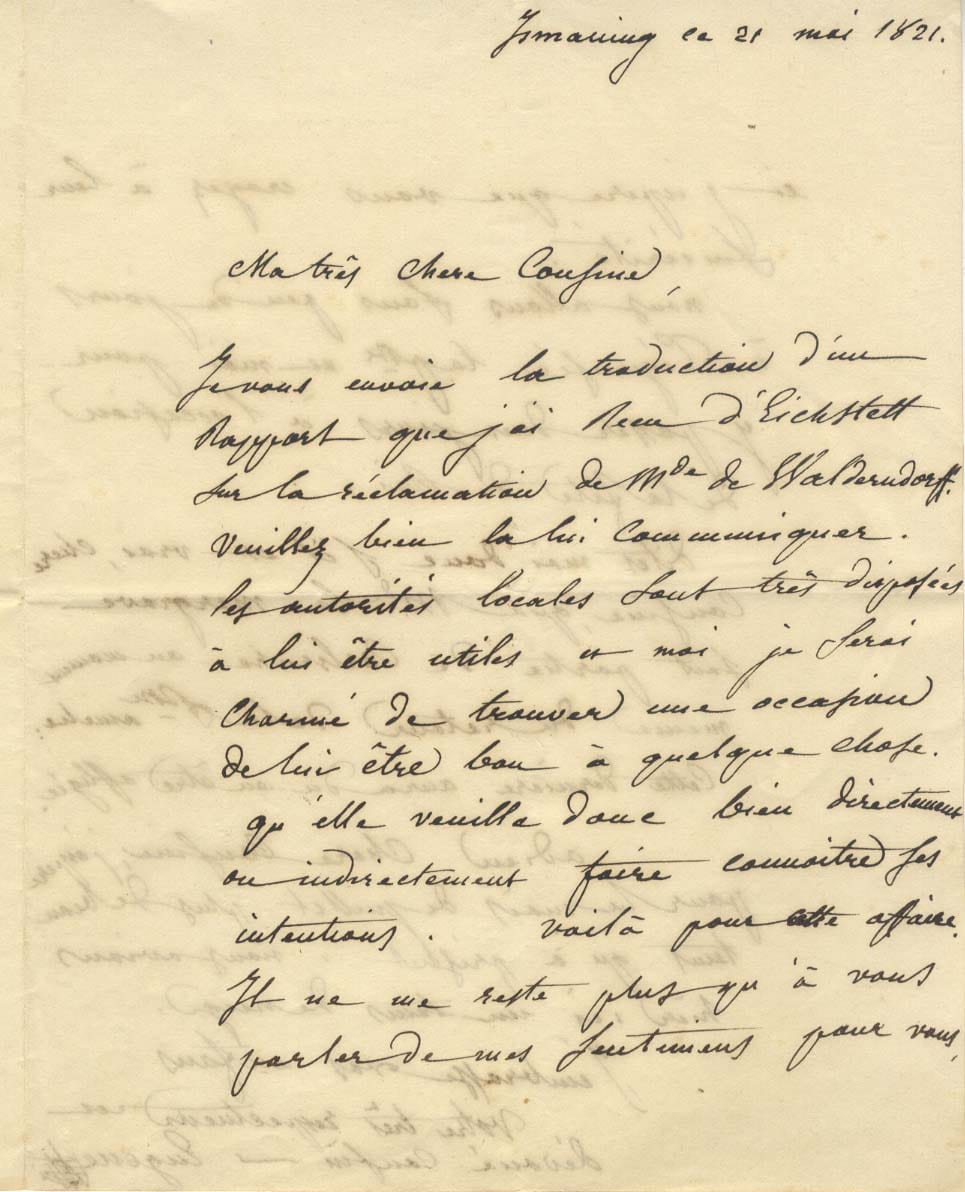 Ismaning ce 21 mai 1821.
Ma très chere Cousine,
Je vous envoie la traduction d'un
Rapport que j'ai Recu d'Eichstett
sur la réclamation de Mde de Walderndorff.
Veuillez bien la lui Communiquer.
les autorités locales sont très disposées
à lui être utiles et moi je serai
Charmé de trouver une occasion
de lui être bon à quelque chose.
qu'elle veuille donc bien directement
ou indirectement faire connoitre ses
intentions. voilà pour cette affaire.
Il ne me reste plus qu'à vous
parler de mes sentimens pour vous,